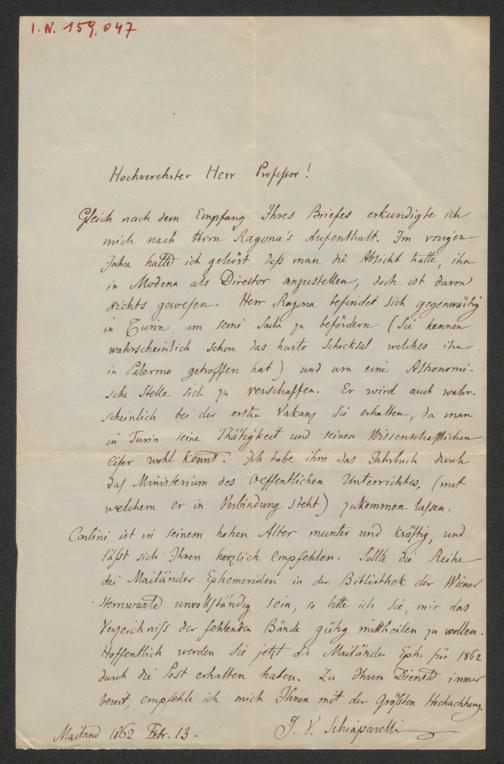 I.N. 159.047
Hochverehrter Herr Professor!
Gleich nach dem Empfang Ihres Briefes erkundigte ich
mich nach Hrrn Ragona's Aufenthalt. Im vorigen
Jahre hatte ich gehört, daß man die Absicht hatte, ihn
in Modena als Director anzustellen, doch ist daraus
nichts gewesen. Herr Ragona befindet sich gegenwärtig
in Turin um seine Sache zu befördern (Sie kennen
wahrscheinlich schon das harte Schicksal welches ihn
in Palermo getroffen hat) und um eine Astronomi-
sche Stelle sich zu verschaffen. Er wird auch wahr-
scheinlich bei der ersten Vakanz Sie erhalten, da man
in Turin seine Thätigkeit und seinen Wissenschaftlichen
Eifer wohl kennt. Ich habe ihm das Jahrbuch durch
das Ministerium des Oeffentlichen Unterrichtes, (mit
welchem er in Verbindung steht) zukommen lassen.
Carlini ist in seinem hohen Alter munter und kräftig, und
läßt sich Ihnen herzlich empfehlen. Sollte die Reihe
der Mailänder Ephemeriden in der Bibliothek der Wiener
Sternwarte unvollständig sein, so bitte ich Sie, mir das
Verzeichniß der fehlenden Bände gütig mittheilen zu wollen.
Hoffentlich werden Sie jetzt die Mailänder Eph. für 1862
durch die Post erhalten haben. Zu Ihrem Dienste immer
bereit, empfehle ich mich Ihnen mit der Größten Hochachtung.
Mailand 1862 Febr. 13.
J. V. Schiaparelli